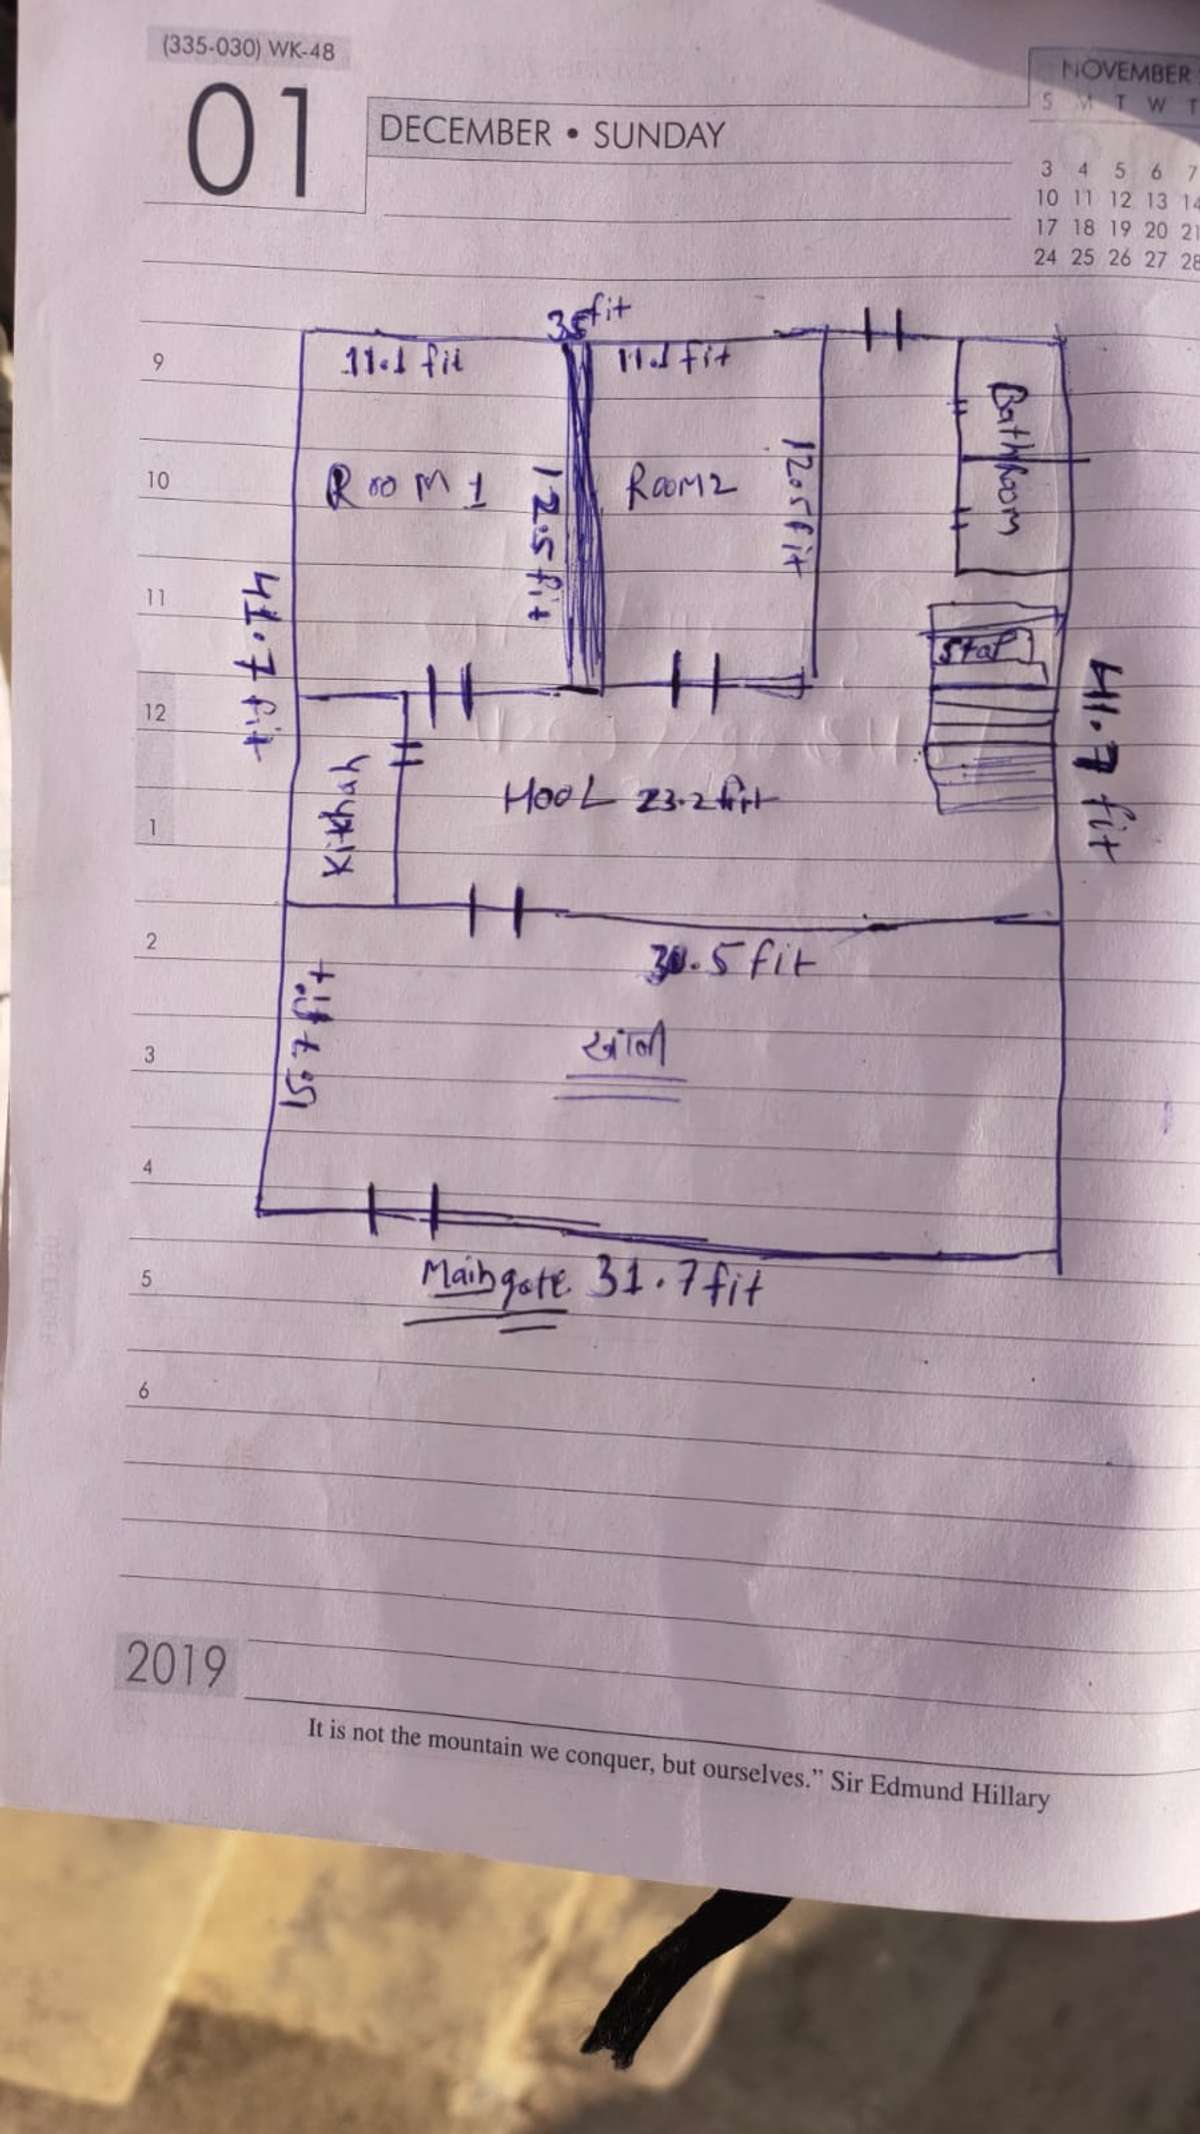 (335-030) WK-48
01
DECEMBER • SUNDAY
NOVEMBER
S M T W T
3 4 5 6 7
10 11 12 13 14
17 18 19 20 21
24 25 26 27 28
35fit
9
11.1 fit
11.1 fit
BathRoom
10
ROOM 1
12.5 fit
ROOM2
12.5fit
11
41.7 fit
12
41.7 fit
Kitkhah
HOOL 23.2 fit
1
2
.5 fit
15.7 fit
3
खाली
4
5
Main gate 31.7 fit
6
2019
It is not the mountain we conquer, but ourselves.” Sir Edmund Hillary